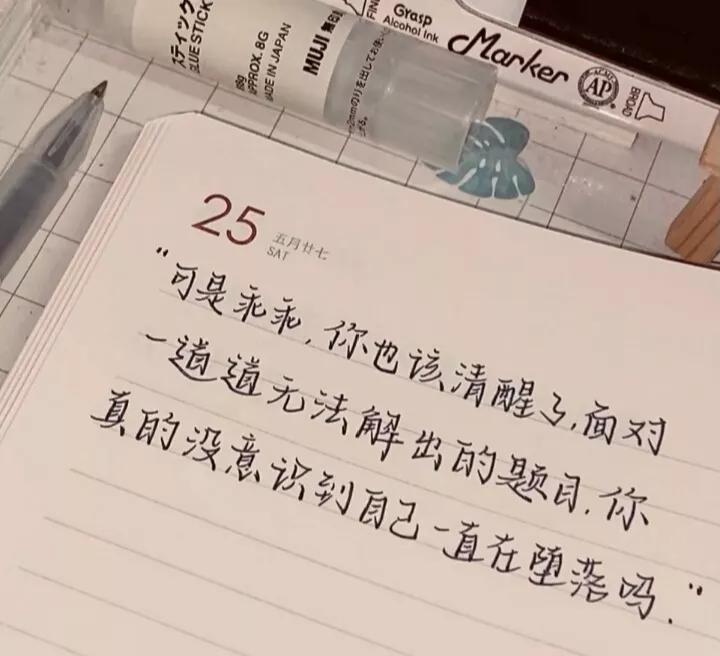 Grasp
Alcohol Ink
Marker
AP
BROAD
FIN
スティック
GLUE STICK
APPROX. 8G
MADE IN JAPAN
MUJI 無印
25
五月廿七
SAT
“可是乖乖,你也该清醒了,面对
一道道无法解出的题目,你
真的没意识到自己一直在堕落吗.”